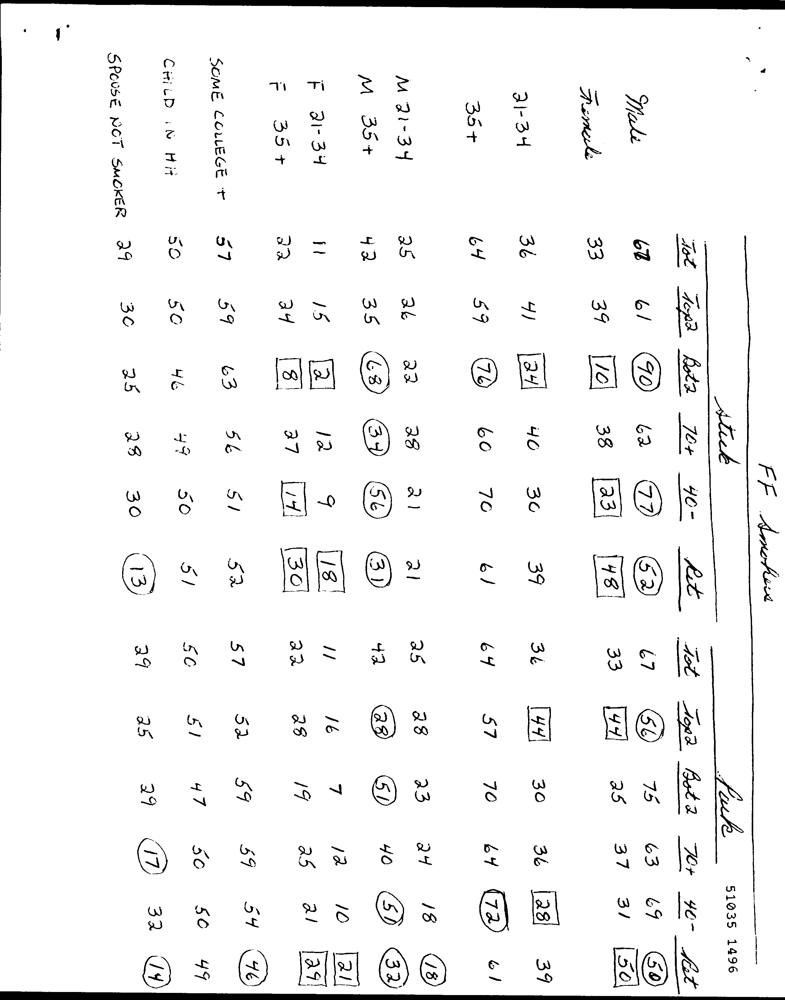 FF Smokers
51035 1496
Stick Pack
Tot Top2 Bot2 70+ 40- Ret Tot Top2 Bot2 70+ 40- Ret
Male 67 61 90 62 77 52 67 56 75 63 69 50
Female 33 39 10 38 23 48 33 44 25 37 31 50
21-34 36 41 24 40 30 39 36 44 30 36 28 39
35+ 64 59 76 60 70 61 64 57 70 64 72 61
M 21-34 25 26 22 28 21 21 25 28 23 24 18 18
M 35+ 42 35 68 34 56 31 42 28 51 40 51 32
F 21-34 11 15 2 12 9 18 11 16 7 12 10 21
F 35+ 22 24 8 27 14 30 22 28 19 25 21 29
SOME COLLEGE + 57 59 63 56 51 52 57 52 59 59 54 46
CHILD IN HH 50 50 46 49 50 51 50 51 47 50 50 49
SPOUSE NOT SMOKER 29 30 25 28 30 13 29 25 29 17 32 14